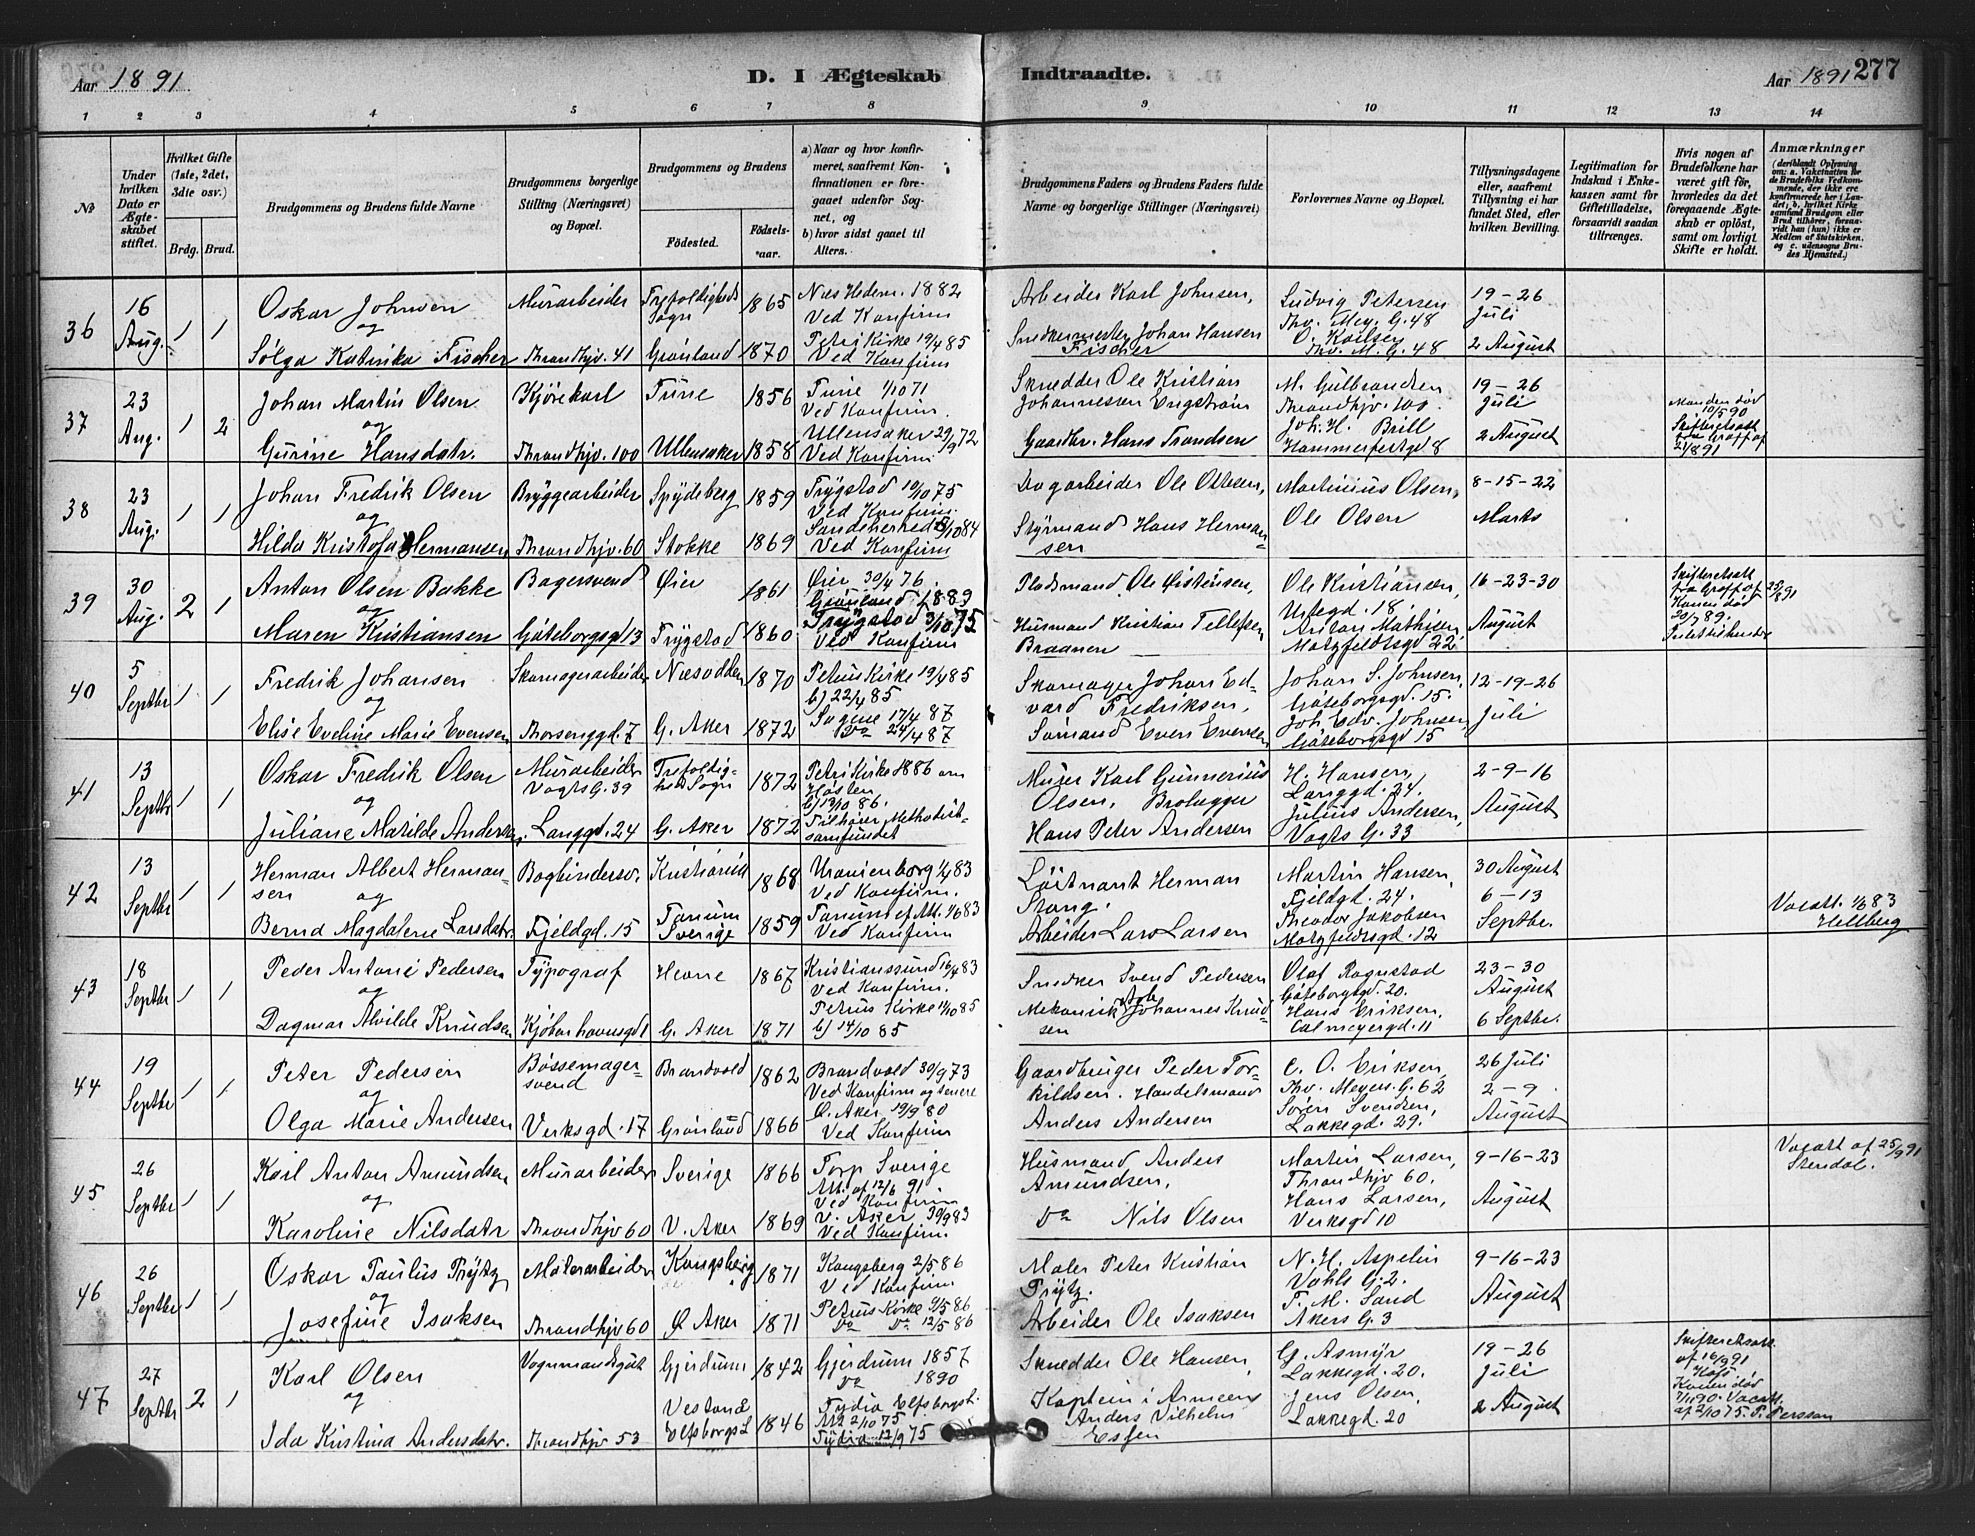 Aar 1891.
D. I Ægteskab
Indtraadte.
Aar 1891
277
1 2 3 4 5 6 7 8 9 10 11 12 13 14
No
Under hvilken Dato er Ægteskabet stiftet.
Hvilket Gifte (1ste, 2det, 3die osv.)
Brdg. Brud.
Brudgommens og Brudens fulde Navne
Brudgommens borgerlige Stilling (Næringsvei) og Bopæl.
Brudgommens og Brudens
Fødested.
Fødselsaar.
a) Naar og hvor konfirmeret, saafremt Konfirmationen er foregaaet udenfor Sognet, og
b) hvor sidst gaaet til Alters.
Brudgommens Faders og Brudens Faders fulde Navne og borgerlige Stillinger (Næringsvei)
Forlovernes Navne og Bopæl.
Tillysningsdagene eller, saafremt Tillysning ei har fundet Sted, efter hvilken Bevilling.
Legitimation for Indskud i Enkekassen samt for Giftetilladelse, forsaavidt saadan tiltrænges.
Hvis nogen af Brudefolkene har været gift før, hvorledes da det foregaaende Ægteskab er opløst, samt om lovligt Skifte er holdt.
Anmærkninger
36
16 Aug.
1 1
Oskar Johnsen
og
Sølga Katinka Fischer
Murarbeider
Throndhjv. 41
Trefoldigheds Sogn
Grønland
1865
1870
Næs Hedem. 1882
Ved Konfirm
Petri Kirke 19/4 85
Ved Konfirm
Arbeider Karl Johnsen,
Snedkermester Johan Hansen
Fischer
Ludvig Petersen
Thv. Mey. G. 48
O. Karlsen
Thv. M. G. 48
19-26
Juli
2 August
37
23 Aug.
1 2
Johan Martin Olsen
og
Gurine Hansdatr.
Kjørekarl
Throndhjv. 100
Tune
Ullensaker
1856
1858
Tune 1/10 71
Ved Konfirm.
Ullensaker 29/9 72
Ved Konfirm
Skrædder Ole Kristian
Johannessen Engstrøm
Gaardbr. Hans Trondsen
M. Gulbrandsen
Throndhjv. 100.
Joh. H. Brill
Hammerfestgd 8
19-26
Juli
2 August
Manden død
10/5 90
Skifteretsatt
fra Graff af
21/8 91
38
23 Aug.
1 1
Johan Fredrik Olsen
og
Hilda Kristofa Hermansen
Bryggearbeider
Throndhjv. 60
Spydeberg
Stokke
1859
1869
Trygstad 10/10 75
Ved Konfirm.
Sandeherred 5/10 84
Ved Konfirm
Dagarbeider Ole Olsen,
Styrmand Hans Hermansen
Martinius Olsen,
Ole Olsen
8-15-22
Marts
39
30 Aug.
2 1
Anton Olsen Bakke
og
Maren Kristiansen
Bagersvend
Gøteborggd 13
Øier
Trygstad
1861
1860
Øier 30/4 76.
Grønland 1889
Trygstad 3/10 75
Ved Konfirm
Pladsmand Ole Østensen,
Husmand Kristian Tellefsen
Braanen
Ole Kristiansen,
Urtegd. 18
Anton Mathisen,
Motzfeldtsgd 22
16-23-30
August
Skifteretsatt
fra Graff af 25/8 91
Konen død
20/7 89.
40
5 Septbr
1 1
Fredrik Johansen
og
Elise Eveline Marie Evensen
Skomagerarbeider
Thorsenggd. 7
Næsodden
G. Aker
1870
1872
Petrus Kirke 19/4 85
b) 22/4 85
Sagene 17/4 87
Do 24/4 87
Skomager Johan Edvard
Fredriksen,
Sømand Even Evensen
Johan S. Johnsen,
Gøteborgsgd. 15.
Joh. Edv. Johnsen
Gøteborgsgd 15
12-19-26
Juli
41
13 Septbr
1 1
Oskar Fredrik Olsen
og
Juliane Matilde Andersen,
Murarbeider
Vogts G. 39
Langgd. 24
Trefoldigheds Sogn
G. Aker
1872
1872
Petri Kirke 1886 om
Høsten
b) 13/10 86.
Tilhører Methodistsamfundet
Murer Karl Gunnerius
Olsen, Brolægger
Hans Peter Andersen
H. Hansen,
Langgd. 24.
Julius Andersen,
Vogts G. 33
2-9-16
August
42
13 Septbr
1 1
Herman Albert Hermansen
og
Bernd Magdalene Larsdatr.
Bogbindersv.
Fjeldgd. 15
Kristiania
Tanum Sverige
1868
1859
Uranienborg 1/4 83
Ved Konfirm.
Tanum ef. Att. 1/6 83
Ved Konfirm
Løitnant Herman
Stang.
Arbeider Lars Larsen
Martin Hansen,
Fjeldgd. 24.
Theodor Jakobsen
Motzfeldtsgd. 12
30 August
6-13
Septbr.
Vacatt. 1/6 83
Hellberg
43
18 Septbr
1 1
Peder Antoni Pedersen
og
Dagmar Alvilde Knudsen
Typograf
Kjøbenhavnsgd 1
Hevne
G. Aker
1867
1871
Kristianssund 16/4 83
Ved Konfirm.
Petrus Kirke 11/10 85
b) 14/10 85
Snedker Svend Pedersen
Mekanisk Arb. Johannes Knudsen
Olaf Rognstad
Gøteborgsgd. 20.
Hans Eriksen,
Calmeyergd. 11
23-30
August
6 Septbr.
44
19 Septbr
1 1
Peter Pedersen
og
Olga Marie Andersen
Bøssemagersvend
Verksgd. 17
Brandvold
Grønland
1862
1866
Brandvold 30/9 73
Ved Konfirm og senere
Ø. Aker 19/9 80
Ved Konfirm
Gaardbruger Peder Torkildsen.
Handelsmand
Anders Andersen
C. O. Eriksen,
Thv. Meyers. G. 62
Søren Svendsen,
Lakkegd. 29.
26 Juli
2-9.
August
45
26 Septbr
1 1
Karl Anton Amundsen
og
Karoline Nilsdatr
Murarbeider
Throndhjv 60
Sverige
V. Aker
1866
1869
Torp Sverige
Att. af 12/6 91
Ved Konfirm
V. Aker 30/9 83
Ved Konfirm.
Husmand Anders
Amundsen,
Do Nils Olsen
Martin Larsen,
Throndhjv 60.
Hans Larsen,
Verksgd 10
9-16-23
August
Vacatt af 25/9 91
Stendal.
46
26 Septbr
1 1
Oskar Paulus Frytz
og
Josefine Isaksen
Malerarbeider
Throndhjv 60
Kongsberg
Ø Aker
1871
1871
Kongsberg 2/5 86
Ved Konfirm
Petrus Kirke 9/5 86
Do Do 12/5 86
Maler Peter Kristian
Frytz.
Arbeider Ole Isaksen
N. H. Aspelin
Vahls G. 2.
T. M. Sand
Akers G. 3
9-16-23
August
47
27 Septbr
2 1
Karl Olsen
og
Ida Kristina Andersdatr.
Vognmandsgut
Throndhjv 53
Gjerdrum
Vestanå Elfsborgs L
1842
1846
Gjerdrum 1857
Do 1890
Fydia Elfsborgsl.
Att 2/10 75
Fydia 12/9 75
Skrædder Ole Hansen,
Kaptein i Armeen
Anders Vilhelm
Essen
G. Asmyr
Lakkegd. 20.
Jens Olsen,
Lakkegd. 20
19-26
Juli
2 August
Skifteretsatt.
af 16/9 91
Konen død
1/10 90. Vacatt.
af 2/10 75. P. Persson